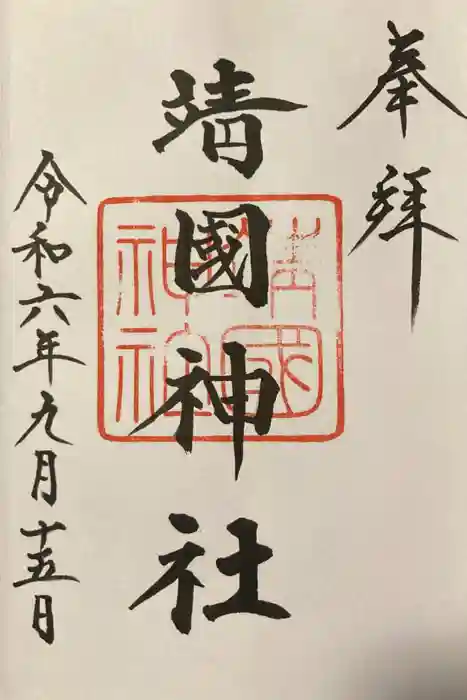 奉拝
靖國神社
靖國
神社
令和六年九月十五日